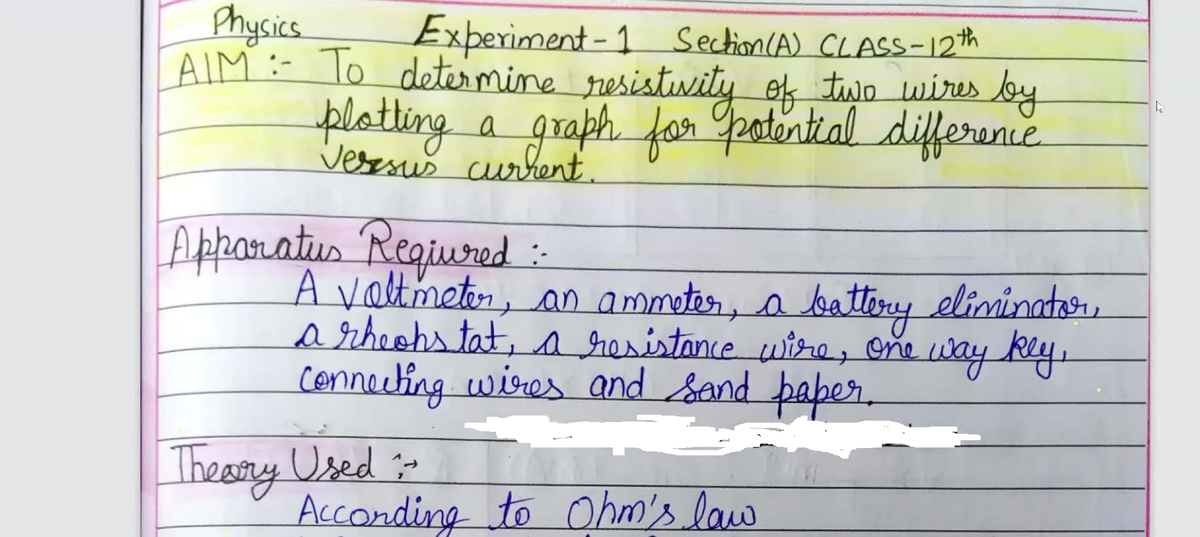 Physics Experiment-1 Section(A) CLASS-12th
AIM :- To determine resistivity of two wires by
plotting a graph for potential difference
versus current.
Apparatus Reqiured :-
A voltmeter, an ammeter, a battery eliminator,
a rheohstat, a resistance wire, one way key,
connecting wires and sand paper.
Theory Used :-
According to Ohm's law